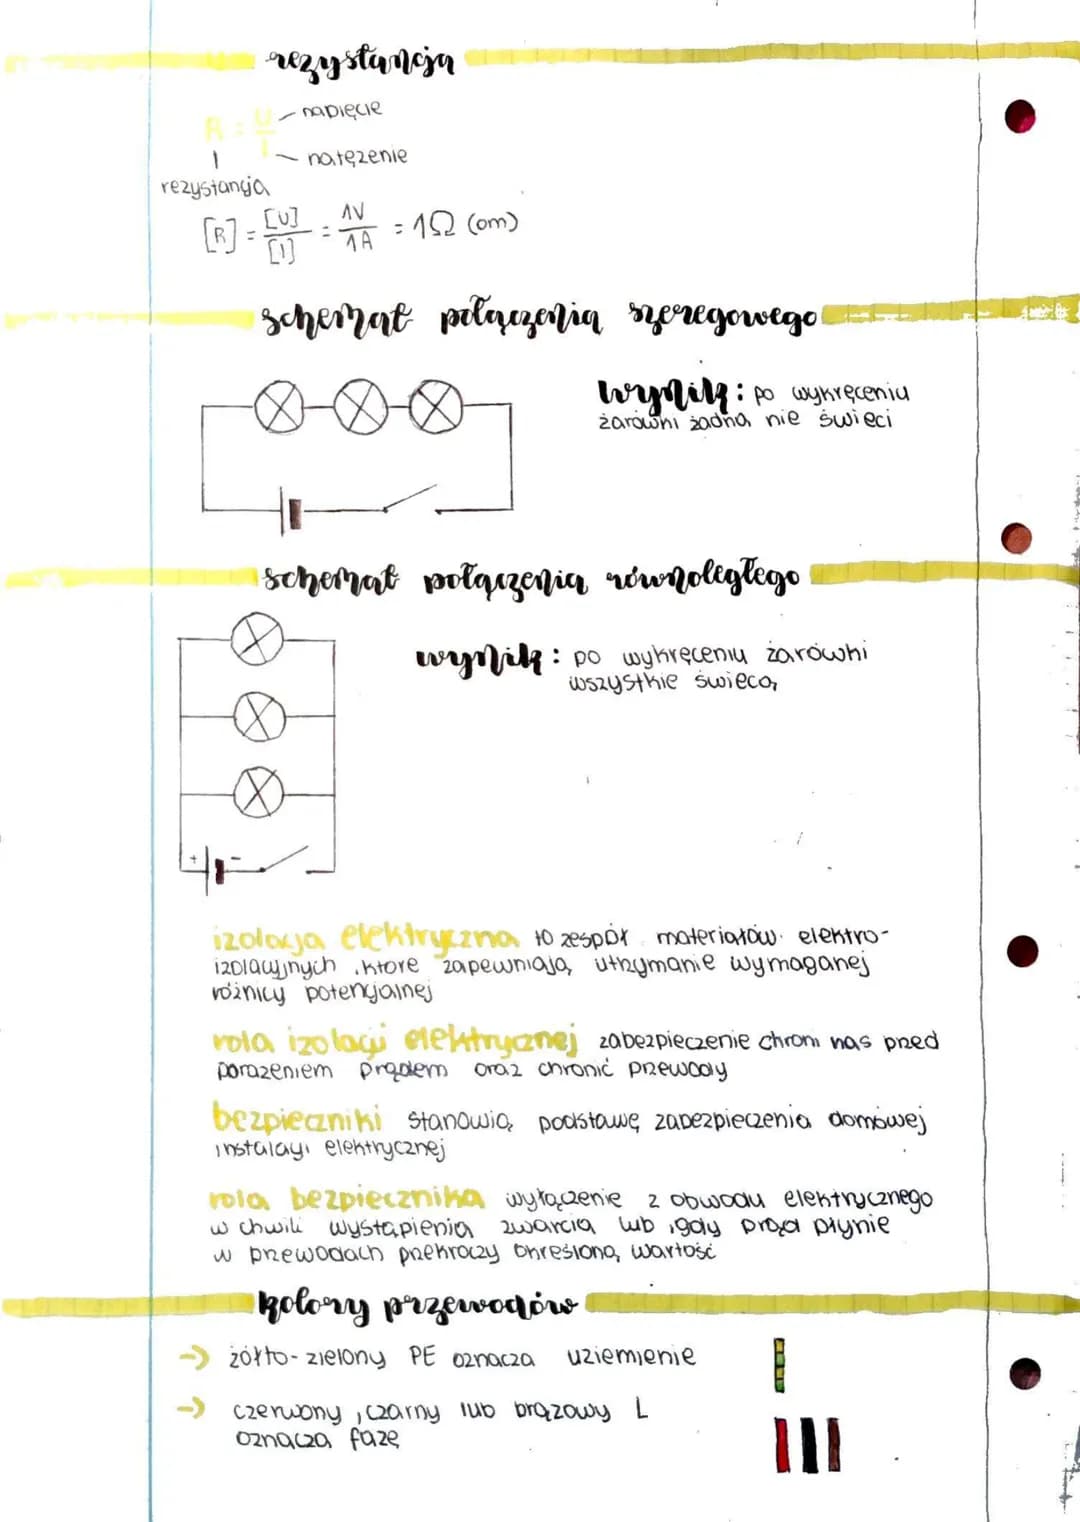 rezystancja
R = U/I
napięcie
natężenie
rezystancja
[R] = [U]/[I] = 1V/1A = 1Ω (om)
schemat połączenia szeregowego
wynik: po wykręceniu
żarówki żadna nie świeci
schemat połączenia równoległego
wynik: po wykręceniu żarówki
wszystkie świecą
+ -
izolacja elektryczna to zespół materiałów elektro-
izolacyjnych, które zapewniają utrzymanie wymaganej
różnicy potencjalnej
rola izolacji elektrycznej zabezpieczenie chroni nas przed
porażeniem prądem oraz chronić przewody
bezpieczniki stanowią podstawę zabezpieczenia domowej
instalacji elektrycznej
rola bezpiecznika wyłączenie z obwodu elektrycznego
w chwili wystąpienia zwarcia lub, gdy prąd płynie
w przewodach przekroczy określoną wartość
kolory przewodów
→ żółto-zielony PE oznacza uziemienie
→ czerwony, czarny lub brązowy L
oznacza fazę